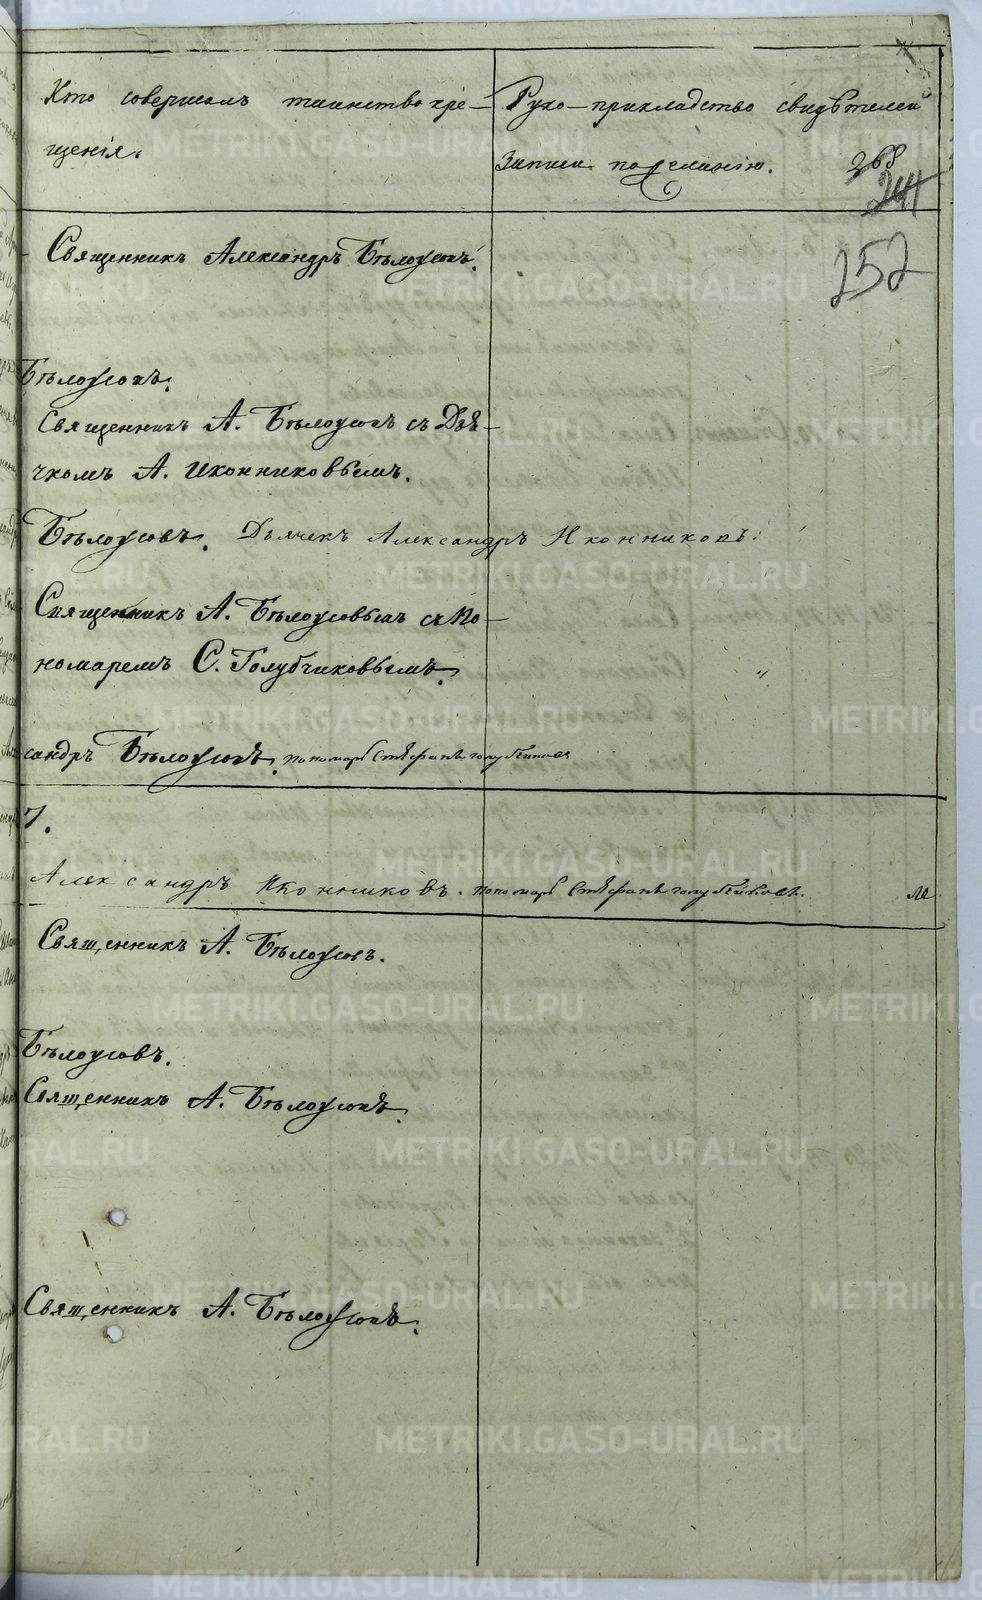 Кто совершалъ таинство кре-
щенія.
Руко-прикладство свидѣтелей
записи по желанію.
268
241
252
Священникъ Александръ Бѣлоусовъ.
Бѣлоусовъ.
Священникъ А. Бѣлоусовъ съ Дья-
чкомъ А. Иконниковымъ.
Бѣлоусовъ. Дьячекъ Александръ Иконниковъ.
Священникъ А. Бѣлоусовымъ съ По-
номаремъ С. Голубчиковымъ.
сандръ Бѣлоусовъ. пономарь Стефанъ голубчиковъ
7.
Александръ Иконниковъ. пономарь Стефанъ голубчиковъ.
Священникъ А. Бѣлоусовъ.
Бѣлоусовъ.
Священникъ А. Бѣлоусовъ.
Священникъ А. Бѣлоусовъ.
METRIKI.GASO-URAL.RU